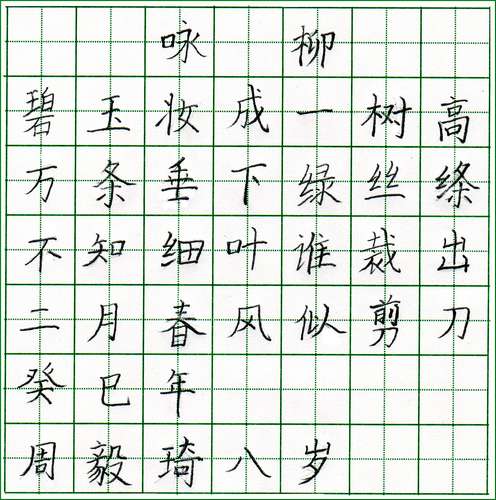 咏柳
碧玉妆成一树高
万条垂下绿丝绦
不知细叶谁裁出
二月春风似剪刀
癸巳年
周毅琦八岁